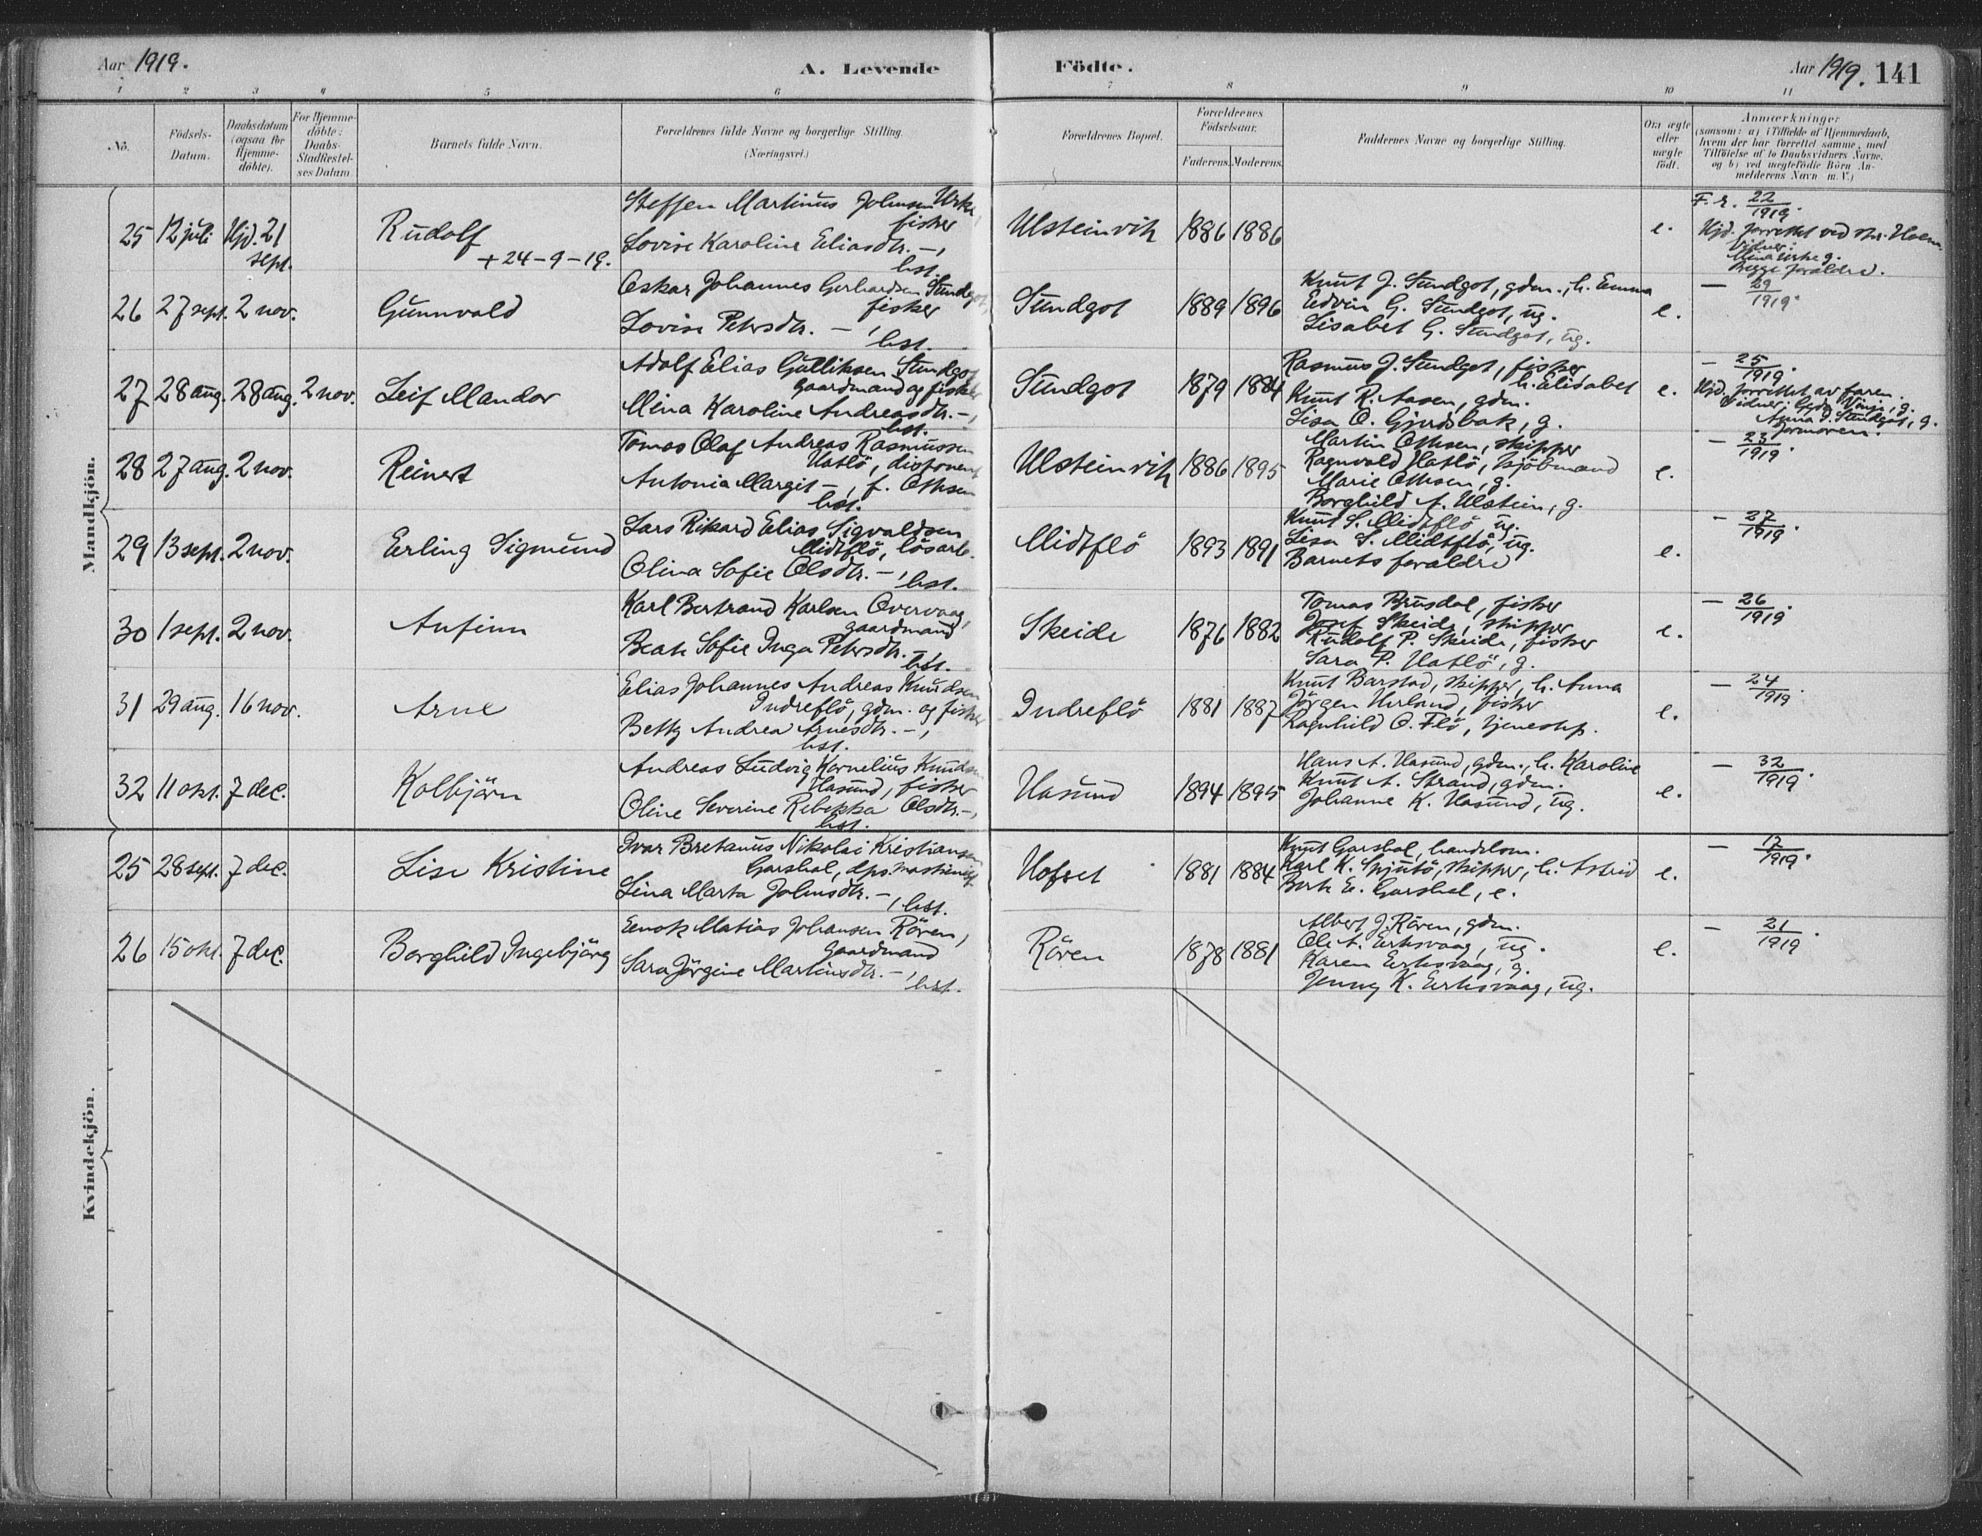 Aar 1919.
A. Levende
Födte.
Aar 1919. 141
1 2 3 4 5 6 7 8 9 10 11
No.
Födsels-Datum.
Daabsdatum (ogsaa for Hjemmedöbte).
For Hjemmedöbte: Daabs-Stadfæstelses Datum
Barnets fulde Navn.
Forældrenes fulde Navne og borgerlige Stilling.
(Næringsvei.)
Forældrenes Bopæl.
Forældrenes Födselsaar.
Faderens. Moderens.
Faddernes Navne og borgerlige Stilling.
Om ægte eller uægte födt.
Anmærkninger
(saasom: a) i Tilfælde af Hjemmedaab, hvem der har forrettet samme, med Tilföielse af to Daabsvidners Navne, og b) ved uægtefödte Börn Anmelderens Navn m. V.)
Mandkjön.
25 12 juli Hjd. 21 sept.
Rudolf
+ 24-9-19.
Steffen Martinus Johnsen Urke
fisker
Lovise Karoline Eliasdtr. –,
hst.
Ulsteinvik 1886 1886
e.
F. r. 22/1919.
Hjd. forrettet ved
Vidner:
Begge foräldre.
26 27 sept. 2 nov.
Gunnvald
Oskar Johannes Gerhardsen Sundgot,
fisker
Lovise Petersdtr. –,
hst.
Sundgot 1889 1896
Knut J. Sundgot, gdm., h. Emma
Edvin G. Sundgot, ug.
Lisabet G. Sundgot, ug.
e.
– 29/1919.
27 28 aug. 28 aug. 2 nov.
Leif Mandor
Adolf Elias Gulliksen Sundgot
gaardmand og fisker
Mina Karoline Andreasdtr. –,
hst.
Sundgot 1879 1884
Rasmus J. Sundgot, fisker
h. Elisabet
Knut R. Aasen, gdm.
Lisa O. Gjerdsbak, g.
e.
– 25/1919.
Hjd. forrettet av faren.
Vidner:
Anna S. Sundgot, g.
jormoren.
28 27 aug. 2 nov.
Reinert
Tomas Olaf Andreas Rasmussen
Hatlö, disponent
Antonia Margit –, f. Othsen
hst.
Ulsteinvik 1886 1895
Martin Othsen, skipper
Ragnvald Hatlö, kjöbmand
Marie Othsen, g.
Borghild A. Ulstein, g.
e.
– 23/1919.
29 13 sept. 2 nov.
Erling Sigmund
Lars Rikard Elias Sigvaldsen
Midtflö, lösarb.
Olina Sofie Olsdtr. –,
hst.
Midtflö 1893 1891
Knut S. Midtflö, ug.
Lisa S. Midtflö, ug.
Barnets foräldre
e.
– 27/1919.
30 1 sept. 2 nov.
Anfinn
Karl Bertrand Karlsen Overvaag,
gaardmand
Beate Sofie Inga Petersdtr. –,
hst.
Skeide 1876 1882
Tomas Brusdal, fisker
Josef Skeide, skipper
Rudolf P. Skeide, fisker
Sara P. Hatlö, g.
e.
– 26/1919.
31 29 aug. 16 nov.
Arne
Elias Johannes Andreas Knudsen
Indreflö, gdm. og fisker
Betty Andrea Arnesdtr. –,
hst.
Indreflö 1881 1887
Knut Barstad, skipper, h. Anna
Jörgen Hurlund, fisker
Ragnhild O. Flö, tjenestep.
e.
– 24/1919.
32 11 okt. 7 dec.
Kolbjörn
Andreas Ludvig Kornelius Knudsen
Hasund, fisker
Oline Severine Rebekka Olsdtr. –,
hst.
Hasund 1894 1895
Hans A. Hasund, gdm., h. Karoline
Knut A. Strand, gdm.
Johanne K. Hasund, ug.
e.
– 32/1919.
Kvindekjön.
25 28 sept. 7 dec.
Lise Kristine
Ivar Bretanus Nikolai Kristiansen
Garshol, dps. maskinist
Lina Marta Johnsdtr. –,
hst.
Hofset 1881 1884
Knut Garshol, handelsm.
Karl K. Spjutö, skipper, h. Astrid
Berte E. Garshol, e.
e.
– 17/1919.
26 15 okt. 7 dec.
Borghild Ingebjörg
Enok Matias Johansen Rören,
gaardmand
Sara Jörgine Martinsdtr. –,
hst.
Rören 1878 1881
Albert J. Rören, gdm.
Ole A. Eiksvaag, ug.
Karen Eiksvaag, g.
Jenny K. Eiksvaag, ug.
e.
– 21/1919.